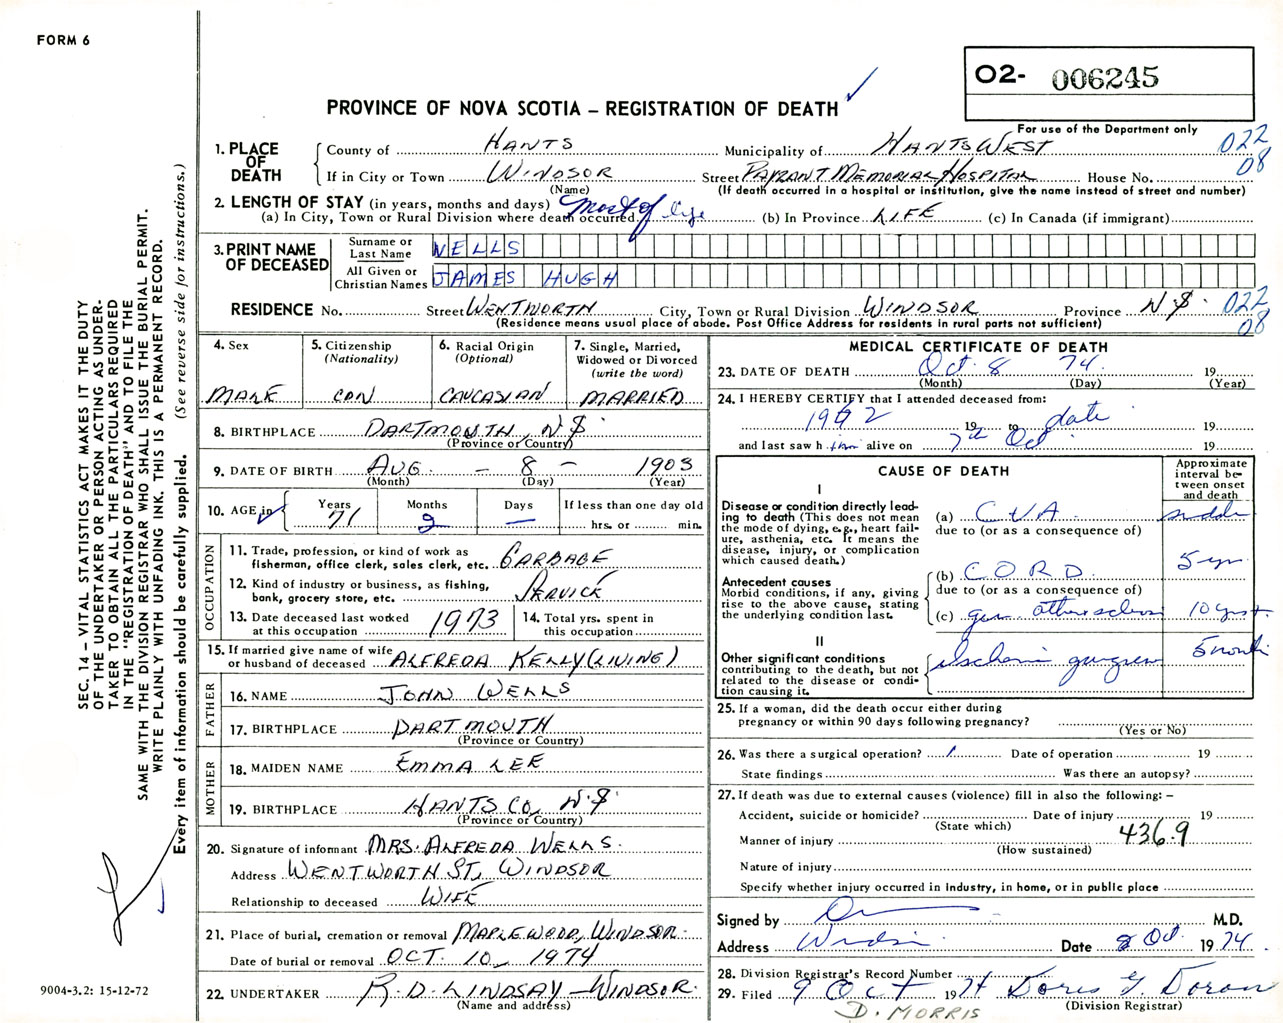 FORM 6
O2- 006245
PROVINCE OF NOVA SCOTIA – REGISTRATION OF DEATH
For use of the Department only
1. PLACE OF DEATH
County of HANTS Municipality of HANTS WEST 022
If in City or Town WINDSOR Street PAYZANT MEMORIAL HOSPITAL House No. 08
(Name) (If death occurred in a hospital or institution, give the name instead of street and number)
2. LENGTH OF STAY (in years, months and days)
(a) In City, Town or Rural Division where death occurred most of life (b) In Province LIFE (c) In Canada (if immigrant)
3. PRINT NAME OF DECEASED
Surname or Last Name WELLS
All Given or Christian Names JAMES HUGH
RESIDENCE No. Street WENTWORTH City, Town or Rural Division WINDSOR Province N.S. 022
(Residence means usual place of abode. Post Office Address for residents in rural parts not sufficient) 08
4. Sex MALE
5. Citizenship (Nationality) CDN
6. Racial Origin (Optional) CAUCASIAN
7. Single, Married, Widowed or Divorced (write the word) MARRIED
8. BIRTHPLACE DARTMOUTH, N.S.
(Province or Country)
9. DATE OF BIRTH AUG. – 8 – 1903
(Month) (Day) (Year)
10. AGE in Years 71 Months 2 Days — If less than one day old hrs. or min.
OCCUPATION
11. Trade, profession, or kind of work as fisherman, office clerk, sales clerk, etc. GARBAGE
12. Kind of industry or business, as fishing, bank, grocery store, etc. SERVICE
13. Date deceased last worked at this occupation 1973
14. Total yrs. spent in this occupation
15. If married give name of wife or husband of deceased ALFREDA KELLY (LIVING)
FATHER
16. NAME JOHN WELLS
17. BIRTHPLACE DARTMOUTH
(Province or Country)
MOTHER
18. MAIDEN NAME EMMA LEE
19. BIRTHPLACE HANTS CO, N.S.
(Province or Country)
20. Signature of informant MRS. ALFREDA WELLS.
Address WENTWORTH ST., WINDSOR
Relationship to deceased WIFE
21. Place of burial, cremation or removal MAPLEWOOD, WINDSOR.
Date of burial or removal OCT. 10, 1974
22. UNDERTAKER R.D. LINDSAY – WINDSOR.
(Name and address)
MEDICAL CERTIFICATE OF DEATH
23. DATE OF DEATH Oct. 8 74. 19
(Month) (Day) (Year)
24. I HEREBY CERTIFY that I attended deceased from:
1962 19 to date 19
and last saw h im alive on 7th Oct 19
CAUSE OF DEATH
Approximate interval between onset and death
I
Disease or condition directly leading to death (This does not mean the mode of dying, e.g., heart failure, asthenia, etc. It means the disease, injury, or complication which caused death.)
(a) CVA
due to (or as a consequence of)
Antecedent causes
Morbid conditions, if any, giving rise to the above cause, stating the underlying condition last.
(b) C O R D. 5 yrs
due to (or as a consequence of)
(c) gen atherosclerosis 10 yrs+
II
Other significant conditions contributing to the death, but not related to the disease or condition causing it.
Ischemic gangrene 5 months
25. If a woman, did the death occur either during pregnancy or within 90 days following pregnancy?
(Yes or No)
26. Was there a surgical operation? Date of operation 19
State findings Was there an autopsy?
27. If death was due to external causes (violence) fill in also the following: –
Accident, suicide or homicide? Date of injury 19
(State which)
Manner of injury 436.9
(How sustained)
Nature of injury
Specify whether injury occurred in industry, in home, or in public place
Signed by M.D.
Address Windsor Date 8 Oct. 19 74.
28. Division Registrar's Record Number
29. Filed 9 Oct 19 74 Doris Y. Doran
(Division Registrar)
D. MORRIS
SEC. 14 – VITAL STATISTICS ACT MAKES IT THE DUTY
OF THE UNDERTAKER OR PERSON ACTING AS UNDER-
TAKER TO OBTAIN ALL THE PARTICULARS REQUIRED
IN THE "REGISTRATION OF DEATH" AND TO FILE THE
SAME WITH THE DIVISION REGISTRAR WHO SHALL ISSUE THE BURIAL PERMIT.
WRITE PLAINLY WITH UNFADING INK. THIS IS A PERMANENT RECORD.
Every item of information should be carefully supplied. (See reverse side for instructions.)
9004-3.2: 15-12-72